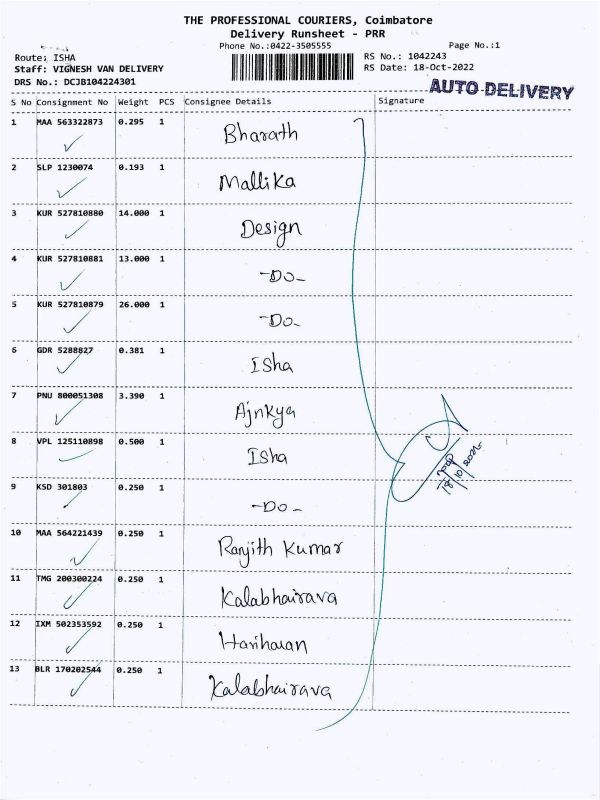 THE PROFESSIONAL COURIERS, Coimbatore
Delivery Runsheet - PRR
Phone No.:0422-3505555 Page No.:1
Route: ISHA RS No.: 1042243
Staff: VIGNESH VAN DELIVERY RS Date: 18-Oct-2022
DRS No.: DCJB104224301
AUTO DELIVERY
S No Consignment No Weight PCS Consignee Details Signature
1 MAA 563322873 0.295 1 Bharath
2 SLP 1230074 0.193 1 Mallika
3 KUR 527810880 14.000 1 Design
4 KUR 527810881 13.000 1 -Do-
5 KUR 527810879 26.000 1 -Do-
6 GDR 5288827 0.381 1 Isha
7 PNU 800051308 3.390 1 Ajnkya
8 VPL 125110898 0.500 1 Isha
9 KSD 301803 0.250 1 -Do-
10 MAA 564221439 0.250 1 Ranjith Kumar
11 TMG 200300224 0.250 1 Kalabhairava
12 IXM 502353592 0.250 1 Hariharan
13 BLR 170202544 0.250 1 Kalabhairava
18/10/2022